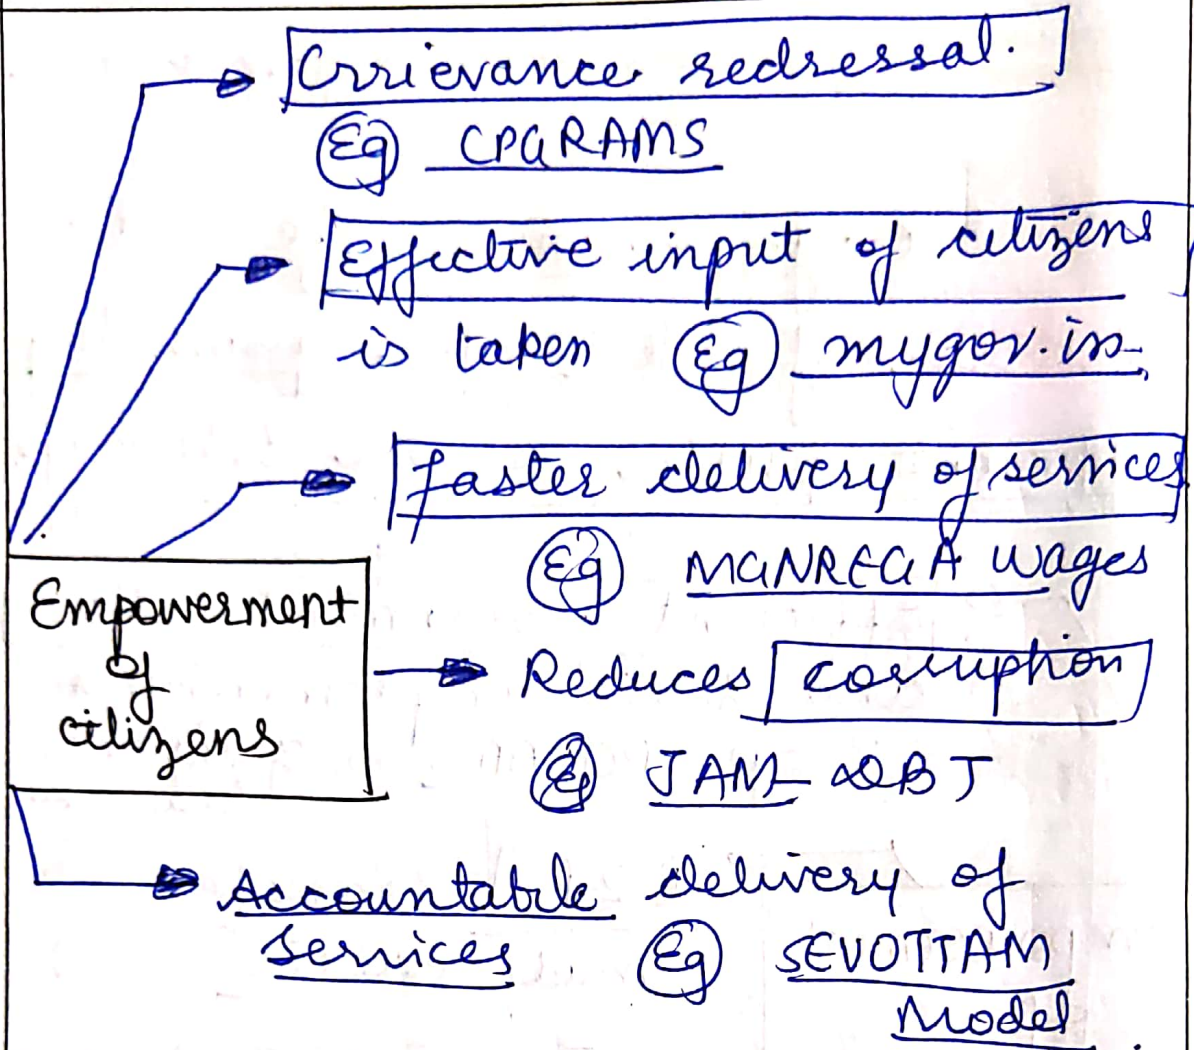 Grievance redressal.
Eg CPGRAMS
Effective input of citizens
is taken Eg mygov.in
faster delivery of services
Eg MGNREGA wages
Empowerment
of
citizens
Reduces corruption
Eg JAM DBT
Accountable delivery of
services Eg SEVOTTAM
Model